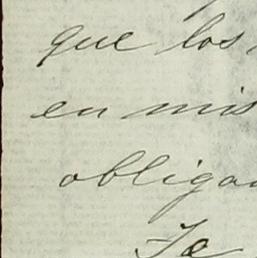 que los
en mis
obliga